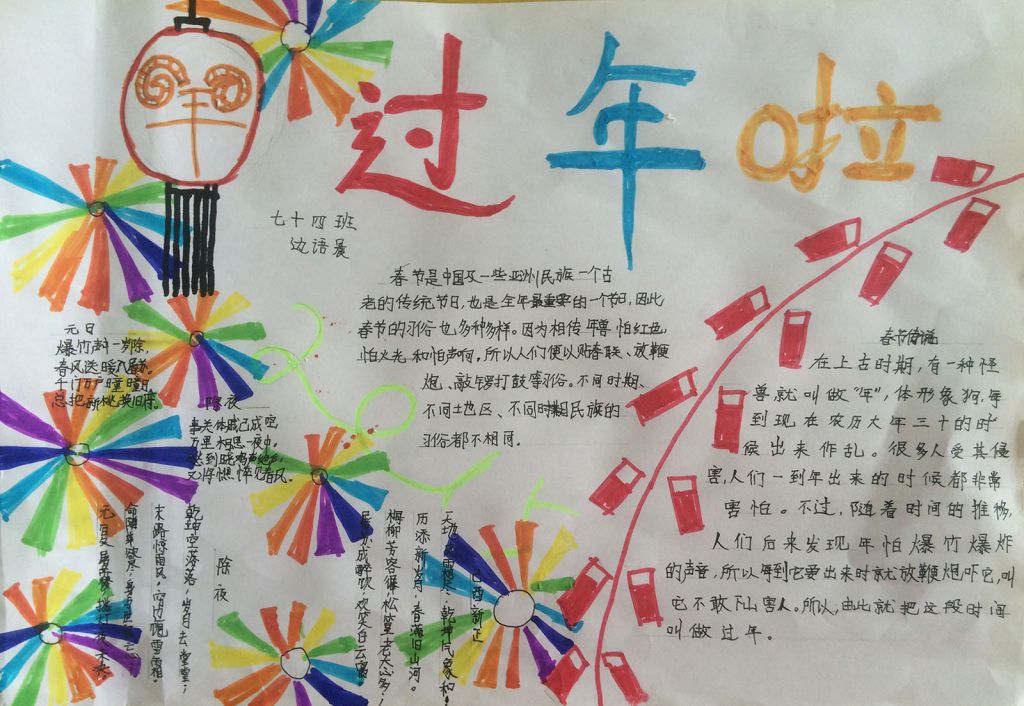 羊
过年啦
七十四班
边语晨
春节是中国及一些亚洲民族一个古
老的传统节日,也是全年最重要的一个节日,因此
春节的习俗也多种多样。因为相传年兽怕红色
怕火光和怕声响,所以人们便以贴春联、放鞭
炮、敲锣打鼓等习俗。不同时期、
不同土地区、不同时期民族的
习俗都不相同。
元日
爆竹声中一岁除,
春风送暖入屠苏。
千门万户曈曈日
总把新桃换旧符。
除夜
事关休戚已成空
万里相思一夜中。
愁到晓鸡声绝后
又将憔悴见春风。
除夜
乾坤空落落,岁月去堂堂;
末路惊风雨,穷边饱雪霜。
命随年欲尽,身与世俱忘;
无复屠苏梦,挑灯夜未央。
己酉新正
天地风霜尽,乾坤气象和;
历添新岁月,春满旧山河。
梅柳芳容徲,松篁老态多;
屠苏成醉饮,欢笑白云窝。
春节传说
在上古时期,有一种怪
兽就叫做“年”,体形象狗,每
到现在农历大年三十的时
候出来作乱。很多人受其侵
害,人们一到年出来的时候都非常
害怕。不过,随着时间的推移,
人们后来发现年怕爆竹爆炸
的声音,所以每到它要出来时就放鞭炮吓它,叫
它不敢下山害人。所以,由此就把这段时间
叫做过年。